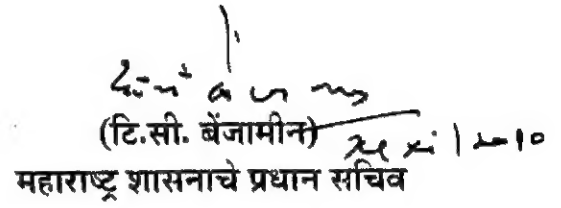 (टि.सी. बेंजामीन)
महाराष्ट्र शासनाचे प्रधान सचिव